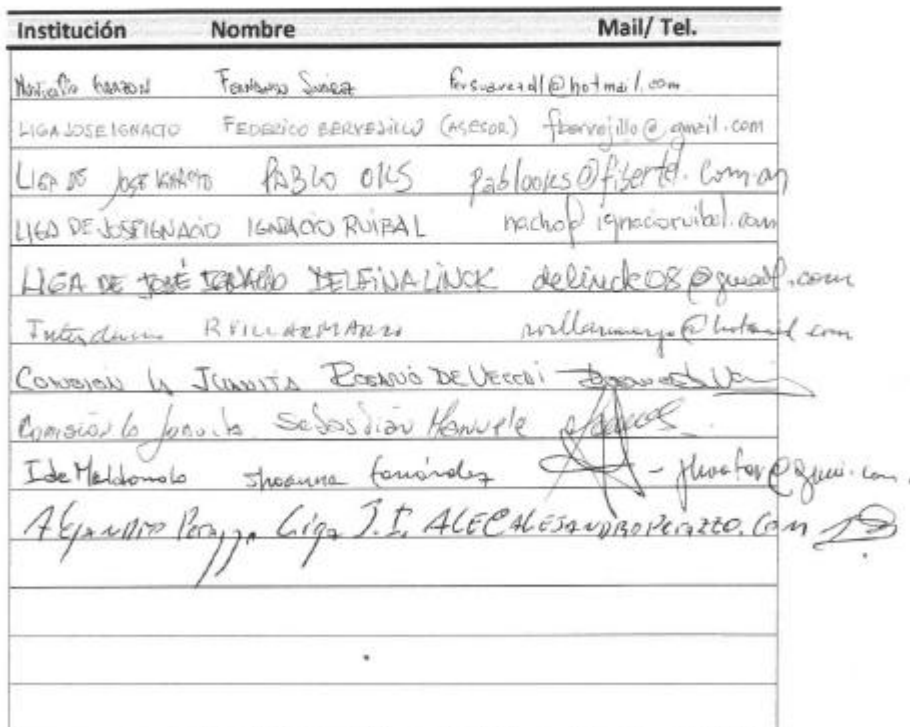 Institución Nombre Mail/ Tel.
Municipio GARZON FERNANDO SUÁREZ
LIGA JOSE IGNACIO FEDERICO BERVEJILLO (ASESOR) fbervejillo@gmail.com
LIGA DE JOSE IGNACIO PABLO OKS pablooks@fibertel.com.ar
LIGA DE JOSE IGNACIO IGNACIO RUIBAL nacho@ignacioruibal.com
LIGA DE JOSÉ IGNACIO DELFINA LINCK delinck08@gmail.com
Intendencia
COMISION LA JUANITA ROSARIO DE
Comisión la Juanita Sebastián Manuele
I de Maldonado Jhoanna Fernández
ALEJANDRO PERAZZO Liga J.I. ALE@ALEJANDROPERAZZO.COM